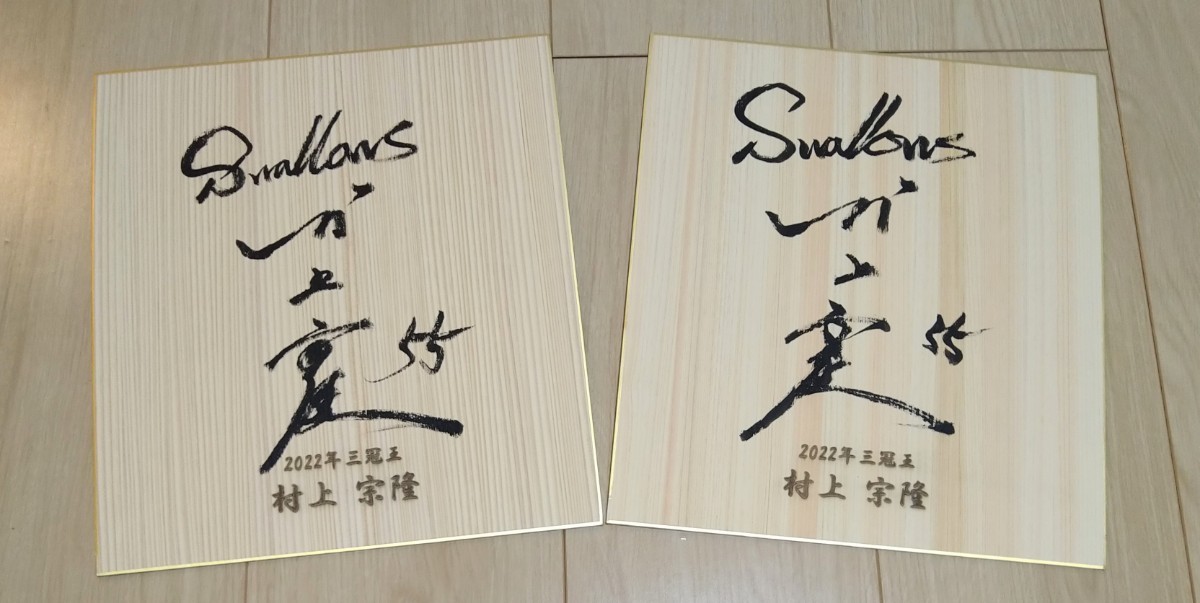 Swallows
村上宗隆
55
2022年三冠王
村上 宗隆
Swallows
村上宗隆
55
2022年三冠王
村上 宗隆